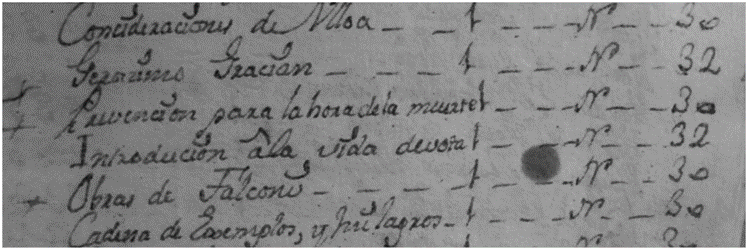 Consideraciones de Ulloa _ t _ _ N _ _ 30
Geronimo Gracian _ _ _ _ t _ _ N _ _ 32
Prevencion para la hora de la muerte t _ _ N _ _ 30
Introducion â la vida devota t _ _ N _ _ 32
Obras de Falconi _ _ _ _ t _ _ N _ _ 30
Cadena de Exemplos, y milagros _ t _ _ N _ _ 30